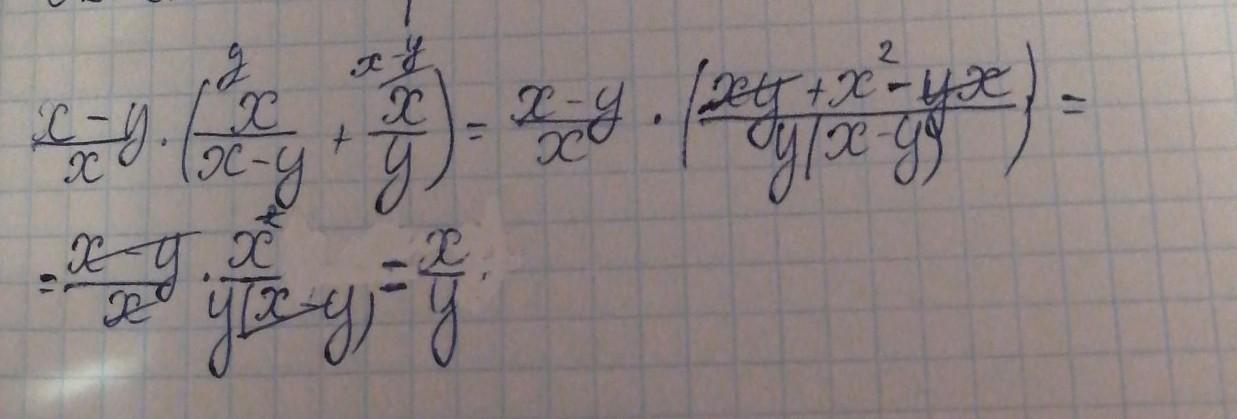 (x-y)/x · (x/(x-y) + x/y) = (x-y)/x · ((xy + x² - yx)/(y(x-y))) =
= (x-y)/x · x²/(y(x-y)) = x/y.